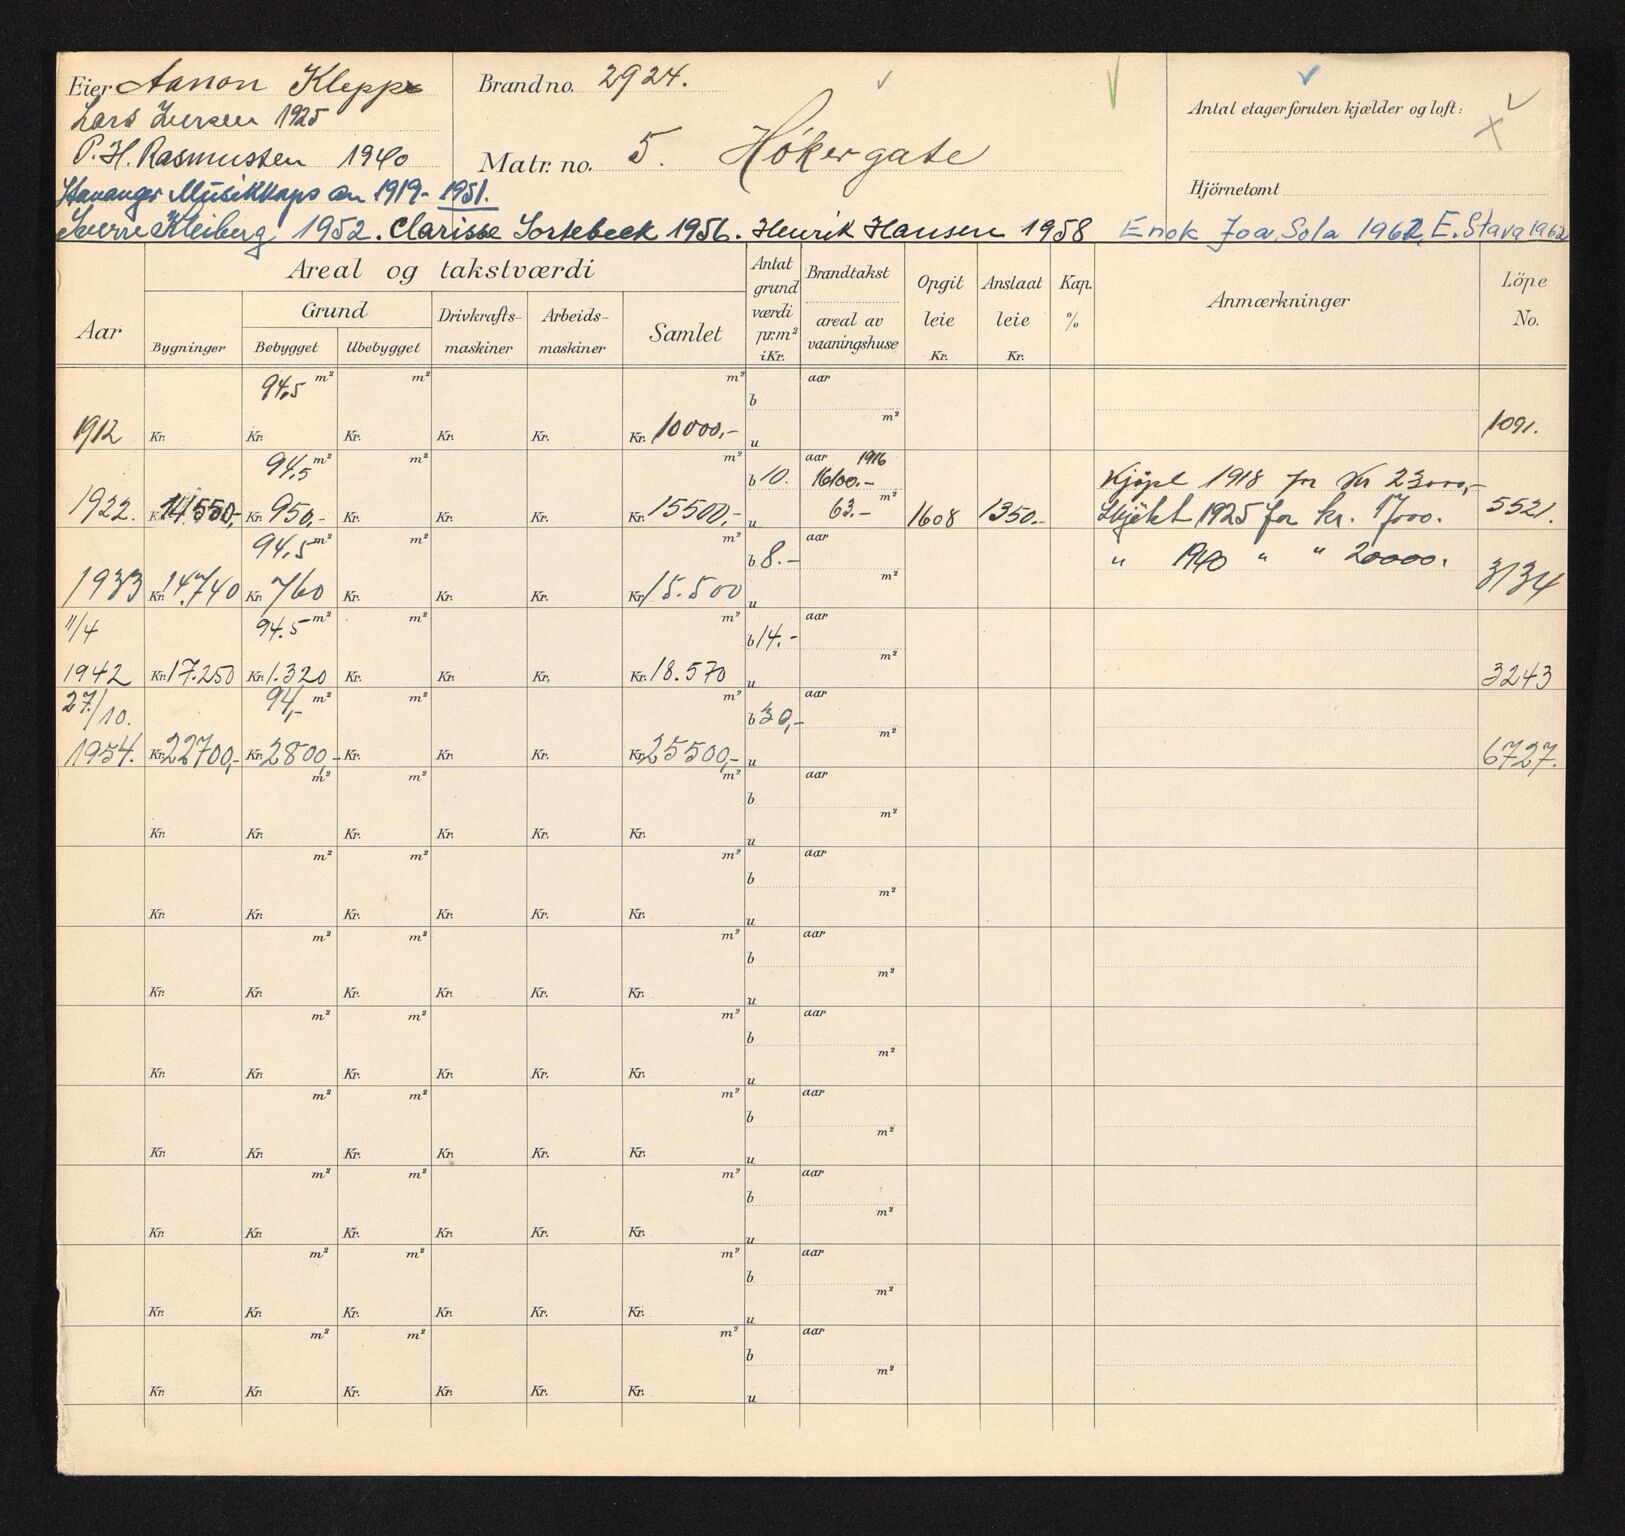 Eier Aanon Kleppe
Lars Iversen 1925
P. H. Rasmussen 1940
Stavanger Musikkorps an 1919-1951.
Sverre Kleiberg 1952. Clarisse Sortebeck 1956. Henrik Hansen 1958 Enok Joa, Sola 1962, E. Stava 1962
Brandno. 2924.
Matr. no. 5. Høkergate
Antal etager foruten kjælder og loft:
Hjörnetomt
Areal og takstværdi
Aar
Bygninger
Grund
Bebygget Ubebygget
Drivkrafts-maskiner
Arbeids-maskiner
Samlet
Antat grundværdi pr. m² i Kr.
Brandtakst
areal av vaaningshuse
Opgit leie Kr.
Anslaat leie Kr.
Kap. %
Anmærkninger
Löpe No.
94,5 m² m² m² b aar
1912 Kr. Kr. Kr. Kr. Kr. Kr. 10000,- u m² 1091.
94,5 m² m² m² b 10. aar 1916 16100.- Kjøpt 1918 for Kr 23000,-
1922. Kr. 14550,- Kr. 950,- Kr. Kr. Kr. Kr. 15500,- u 63.- m² 1608 1350.- Skjøtet 1925 for kr. 17000. 5521.
94,5 m² m² m² b 8.- aar " 1940 " " 20000.
1933 Kr. 14.740 Kr. 760 Kr. Kr. Kr. Kr. 15.500 u m² 3134
11/4 94.5 m² m² m² b 14.- aar
1942 Kr. 17.250 Kr. 1.320 Kr. Kr. Kr. Kr. 18.570 u m² 3243
27/10. 94,- m² m² m² b 30,- aar
1954. Kr. 22700,- Kr. 2800,- Kr. Kr. Kr. Kr. 25500,- u m² 6727.
m² m² m² b aar
Kr. Kr. Kr. Kr. Kr. Kr. u m²
m² m² m² b aar
Kr. Kr. Kr. Kr. Kr. Kr. u m²
m² m² m² b aar
Kr. Kr. Kr. Kr. Kr. Kr. u m²
m² m² m² b aar
Kr. Kr. Kr. Kr. Kr. Kr. u m²
m² m² m² b aar
Kr. Kr. Kr. Kr. Kr. Kr. u m²
m² m² m² b aar
Kr. Kr. Kr. Kr. Kr. Kr. u m²
m² m² m² b aar
Kr. Kr. Kr. Kr. Kr. Kr. u m²
m² m² m² b aar
Kr. Kr. Kr. Kr. Kr. Kr. u m²